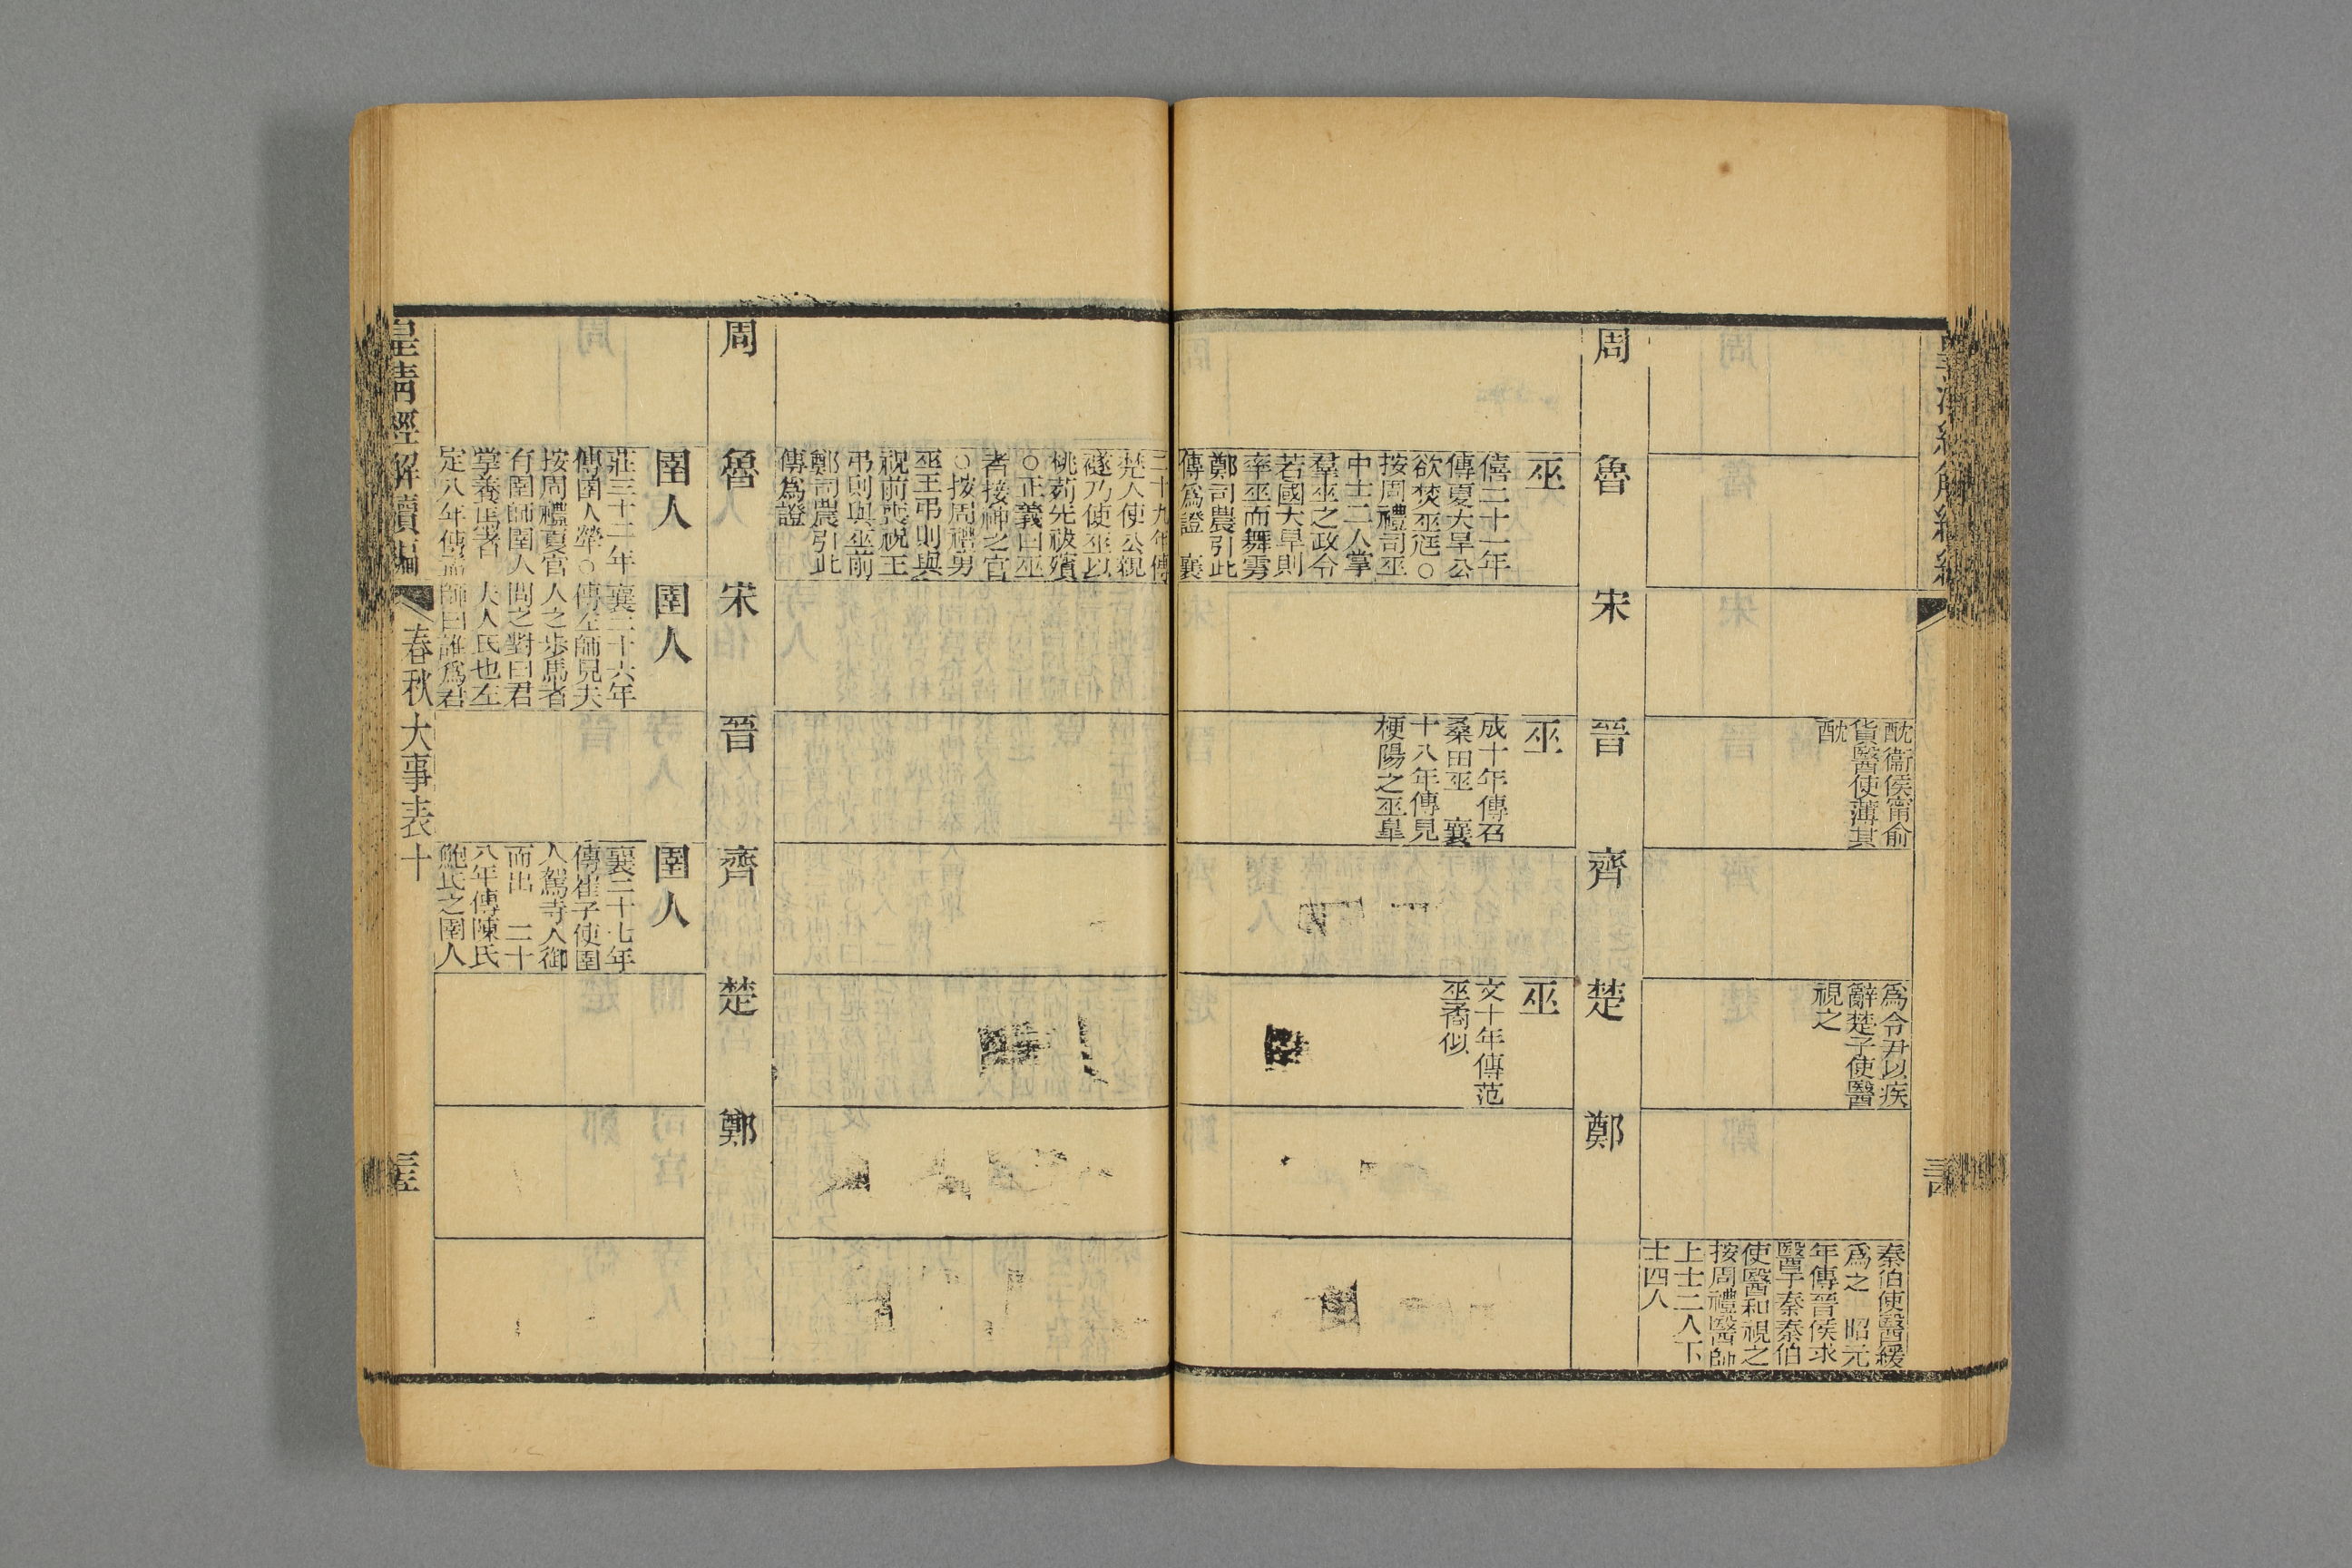 酖衞侯甯俞
貨醫使薄其
酖
爲令尹以疾
辭楚子使醫
視之
秦伯使醫緩
爲之 昭元
年傳晉侯求
醫于秦秦伯
使醫和視之
按周禮醫師
上士二人下
士四人
周
魯
宋
晉
齊
楚
鄭
巫
僖二十一年
傳夏大旱公
欲焚巫尫○
按周禮司巫
中士二人掌
羣巫之政令
若國大旱則
率巫而舞雩
鄭司農引此
傳爲證 襄
巫
成十年傳召
桑田巫 襄
十八年傳見
梗陽之巫皐
巫
文十年傳范
巫矞似
二十九年傳
楚人使公親
襚乃使巫以
桃茢先祓殯
○正義曰巫
者接神之官
○按周禮男
巫王弔則與
祝前喪祝王
弔則與巫前
鄭司農引此
傳爲證
周
魯
宋
晉
齊
楚
鄭
圉人
莊三十二年
傳圉人犖○
按周禮夏官
有圉師圉人
掌養馬者
定八年傳孟
圉人
襄二十六年
傳左師見夫
人之步馬者
問之對曰君
夫人氏也左
師曰誰爲君
圉人
襄二十七年
傳崔子使圉
人駕寺人御
而出 二十
八年傳陳氏
鮑氏之圉人
皇清經解續編
春秋大事表十